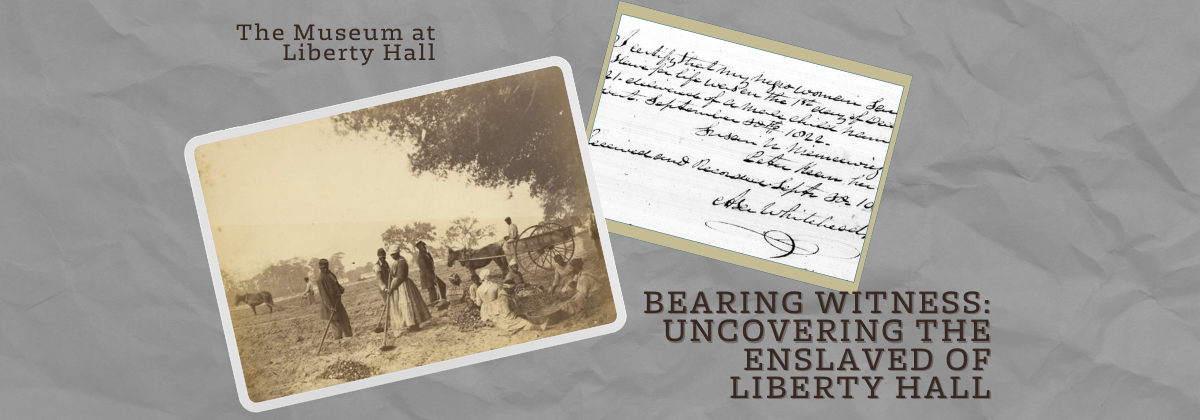 The Museum at
Liberty Hall
I certify that my negro woman
Slave for life was on the 1st day of
delivered of a male child
September 30th 1822.
Susan U Niemcewicz
Peter Kean her
Received and Recorded Septr 30
Asa Whitehead
BEARING WITNESS:
UNCOVERING THE
ENSLAVED OF
LIBERTY HALL